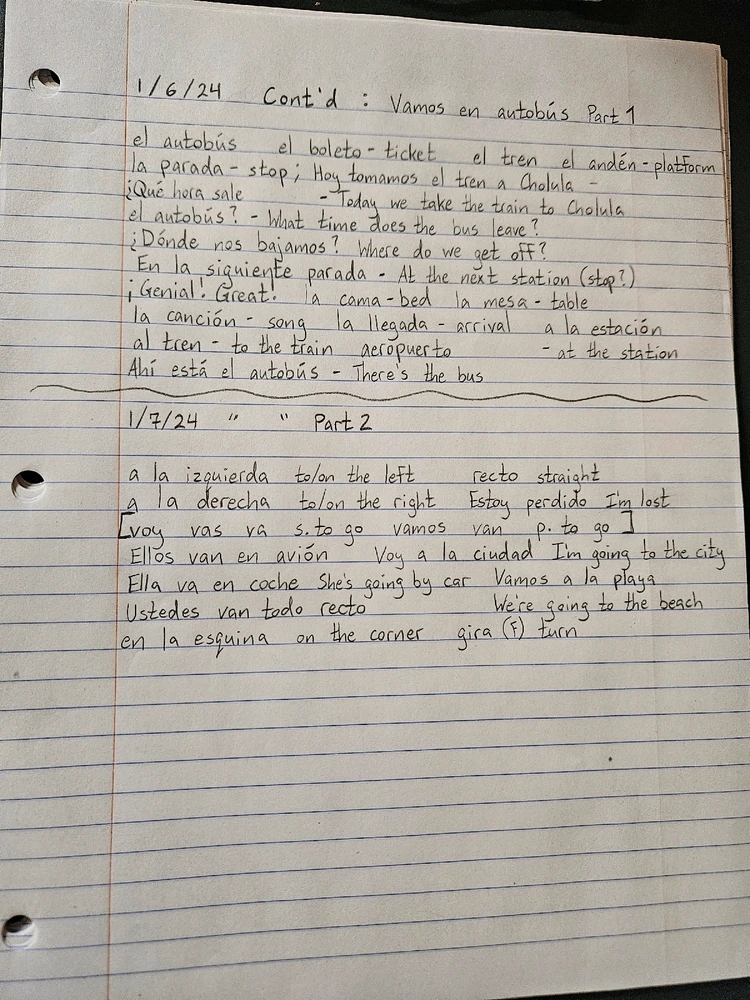 1/6/24 Cont'd : Vamos en autobús Part 1
el autobús el boleto - ticket el tren el andén - platform
la parada - stop; Hoy tomamos el tren a Cholula -
¿Qué hora sale - Today we take the train to Cholula
el autobús? - What time does the bus leave?
¿Dónde nos bajamos? Where do we get off?
En la siguiente parada - At the next station (stop?)
¡Genial! Great! la cama - bed la mesa - table
la canción - song la llegada - arrival a la estación
al tren - to the train aeropuerto - at the station
Ahí está el autobús - There's the bus
1/7/24 " " Part 2
a la izquierda to/on the left recto straight
a la derecha to/on the right Estoy perdido I'm lost
[voy vas va s. to go vamos van p. to go]
Ellos van en avión Voy a la ciudad I'm going to the city
Ella va en coche She's going by car Vamos a la playa
Ustedes van todo recto We're going to the beach
en la esquina on the corner gira (F) turn